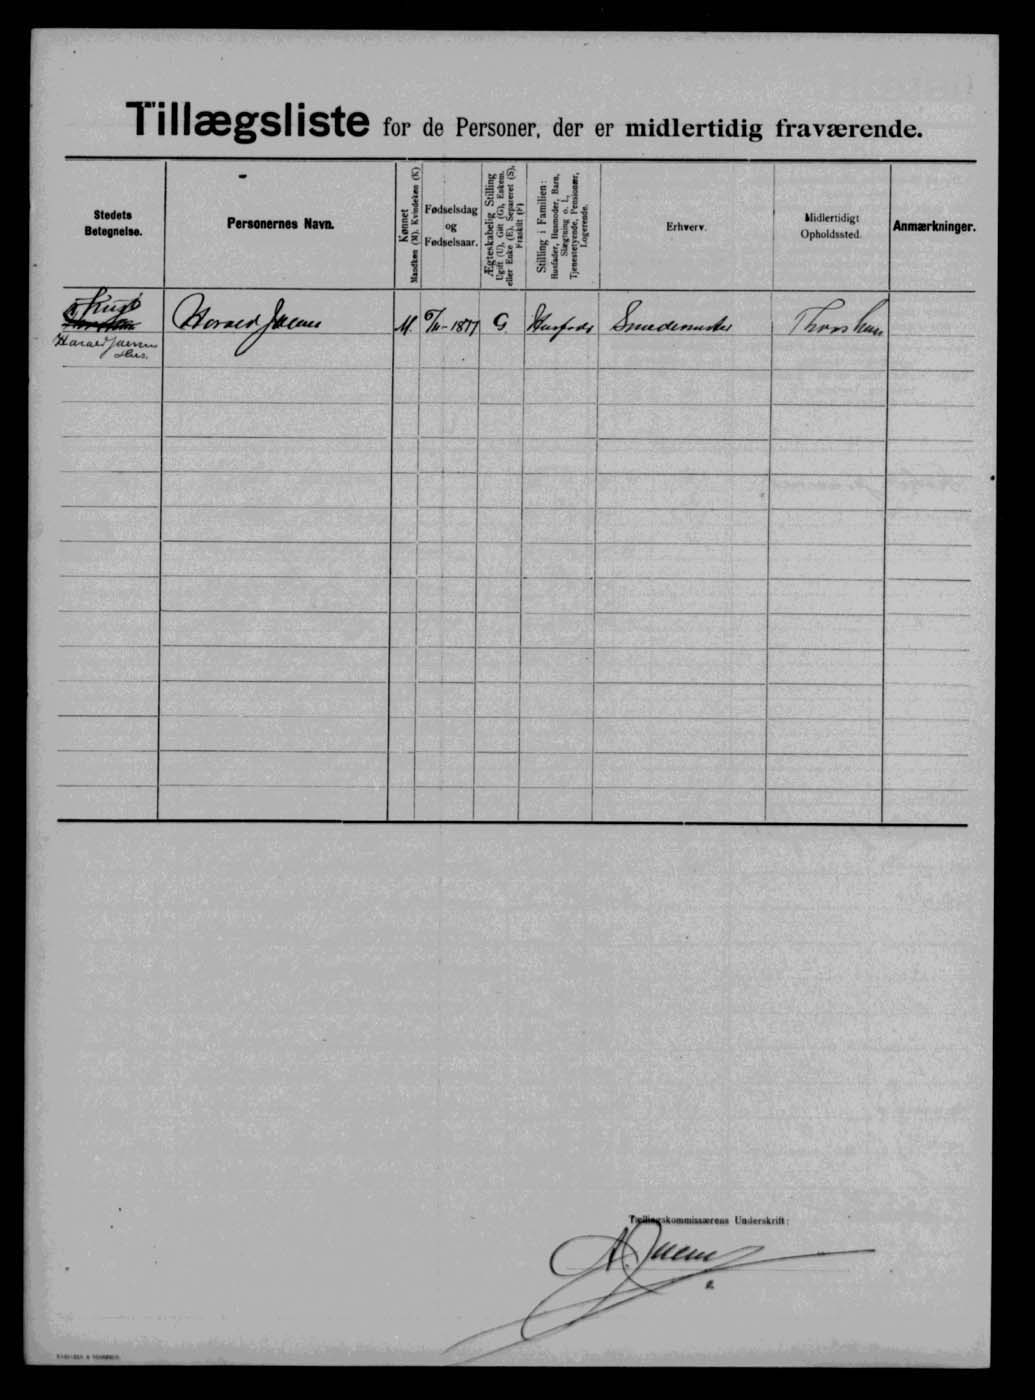 Tillægsliste for de Personer, der er midlertidig fraværende.
Stedets
Betegnelse.
Personernes Navn.
Kønnet
Mandkøn (M). Kvindekøn (K)
Fødselsdag
og
Fødselsaar.
Ægteskabelig Stilling
Ugift (U), Gift (G), Enkem.
eller Enke (E), Separeret (S),
Fraskilt (F)
Stilling i Familien:
Husfader, Husmoder, Barn,
Slægtning o. l.,
Tjenestetyende, Pensionær,
Logerende.
Erhverv.
Midlertidigt
Opholdssted.
Anmærkninger.
Harald Joensen
Hus.
Harald Joensen
M.
1877
G
Husfader
Smedemester
Thorshavn
Tællingskommissærens Underskrift: